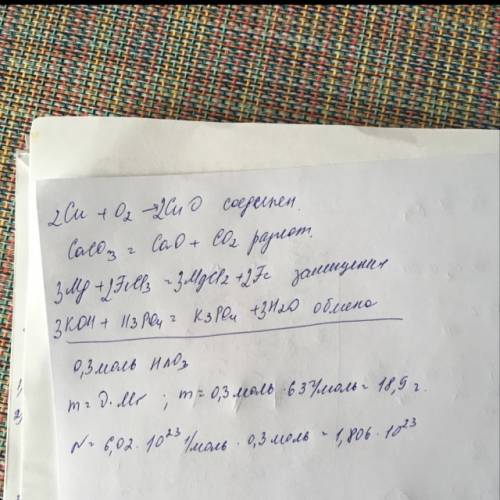 2Cu + O2 → 2CuO соединен.
CaCO3 = CaO + CO2 разлож.
3Mg + 2FeCl3 = 3MgCl2 + 2Fe замещения
3KOH + H3PO4 = K3PO4 + 3H2O обмена
0,3 моль HNO3
m = ν · Mr ; m = 0,3 моль · 63 г/моль = 18,9 г.
N = 6,02 · 10^23 1/моль · 0,3 моль = 1,806 · 10^23